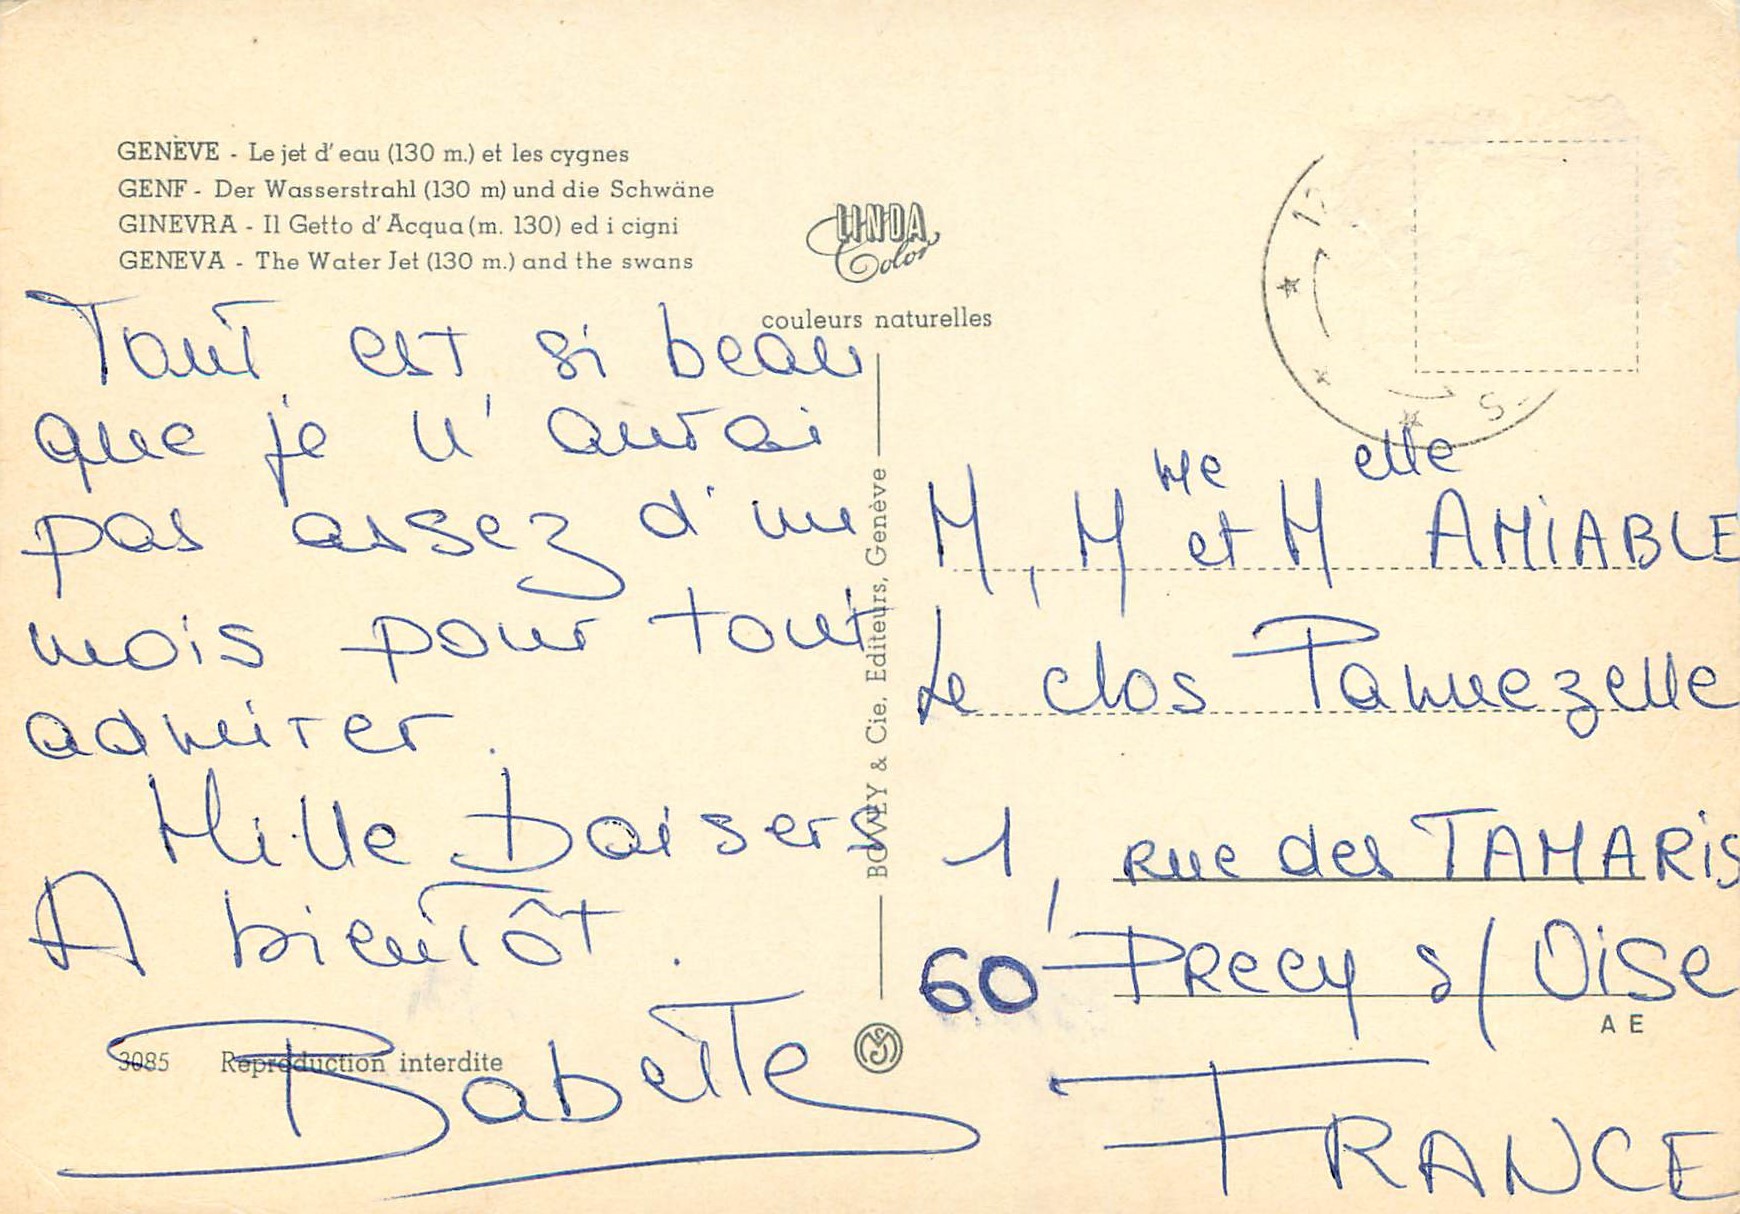 GENÈVE - Le jet d'eau (130 m.) et les cygnes
GENF - Der Wasserstrahl (130 m) und die Schwäne
GINEVRA - Il Getto d'Acqua (m. 130) ed i cigni
GENEVA - The Water Jet (130 m.) and the swans
LINDA
Color
couleurs naturelles
Tout est si beau
que je n'aurai
pas assez d'un
mois pour tout
admirer.
Mille baisers
A bientôt.
Babette
3085 Reproduction interdite
BOVEY & Cie. Editeurs, Genève
M, Mme et Melle AMIABLE
Le clos
1, rue des TAMARIS
60 PRECY s/ OISE
FRANCE
AE